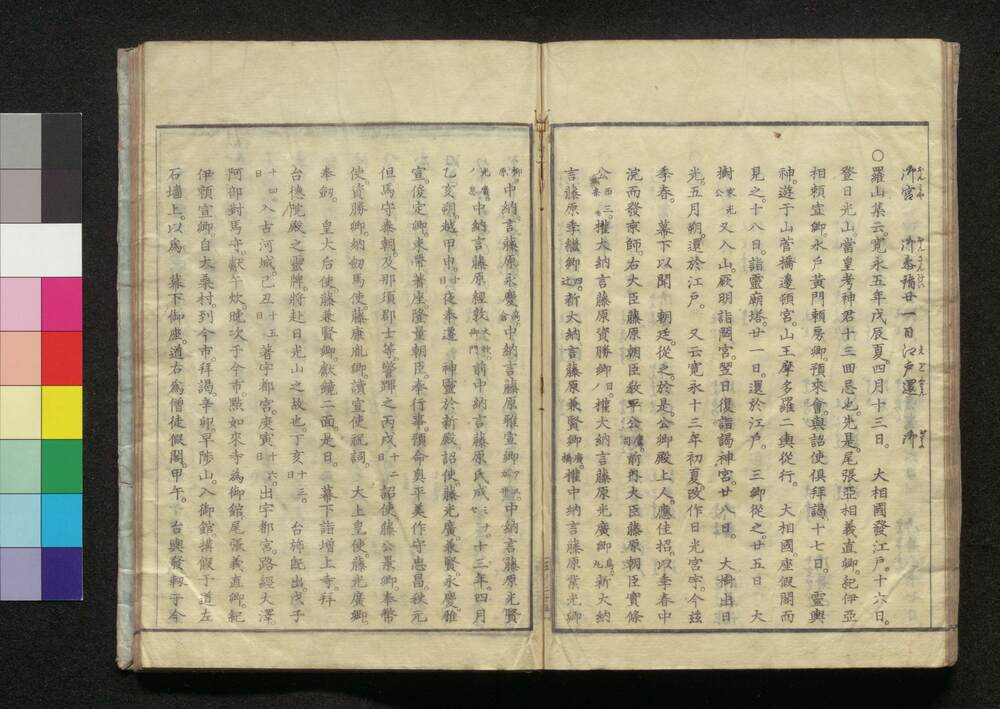 御宮 御参詣廿一日江戸還 御
〇羅山集云。寛永五年戊辰夏四月十三日。 大相國發江戸。十六日。
登日光山。當皇考神君十三回忌也。先是。尾張亞相義直卿。紀伊亞
相頼宣卿。水戸黄門頼房卿。預來會。與詔使倶拜謁。十七日。 靈輿
神遊于山菅橋邊頓宮。山王摩多羅二輿從行。 大相國。座假閣而
見之。十八日。詣靈廟塔。廿一日。還於江戸。 三卿從之。廿五日 大
樹家光公又入山。厥明詣閟宮。翌日復詣謁神宮。廿八日。 大樹出日
光。五月朔。還於江戸。 又云寛永十三年初夏。改作日光宮宇。今茲
季春。 幕下以聞 朝廷。從之。於是。公卿殿上人。應佳招。以季春中
浣而發京師。右大臣藤原朝臣教平公。前内大臣藤原朝臣實條
公西三條。權大納言藤原資勝卿日野。權大納言藤原光廣卿烏丸。新大納
言藤原季繼卿四辻。新大納言藤原兼賢卿廣橋。權中納言藤原業光卿
柳原。中納言藤原永慶高倉。中納言藤原雅宣卿。中納言藤原光賢
光廣ノ息。中納言藤原經敦。前中納言藤原氏成。十三年四月
乙亥朔越甲申十日。夜奉遷 神靈於新殿。詔使藤光廣。兼賢。永慶。雅
宣。俊定卿。束帶著座。隆量朝臣。奉行事。預命奥平美作守忠昌。秋元
但馬守泰朝。及那須郡士等。警蹕之。丙戌十二日。詔使藤公景卿。奉幣
使。資勝卿。納劔馬。使藤康胤卿。讀宣使祝詞。 大上皇使。藤光廣卿。
奉劔。 皇大后使藤兼賢卿。獻鏡二面。是日。 幕下詣增上寺。拜
台德院殿之靈牌。將赴日光山之故也。丁亥十三日。 台旆既出。戊子
十四日。入古河城。己丑十五日。著宇都宮。庚寅十六日。出宇都宮。路經大澤。
阿部對馬守。獻午炊。晩次于今市。點如來寺為御館。尾張義直卿。紀
伊頼宣卿自大桑村到今市。拜謁。辛卯早陟山。入御館。搆假于道左
石墻上。以為 幕下御座。道右為僧徒假閣。甲午。 台輿發軔于今